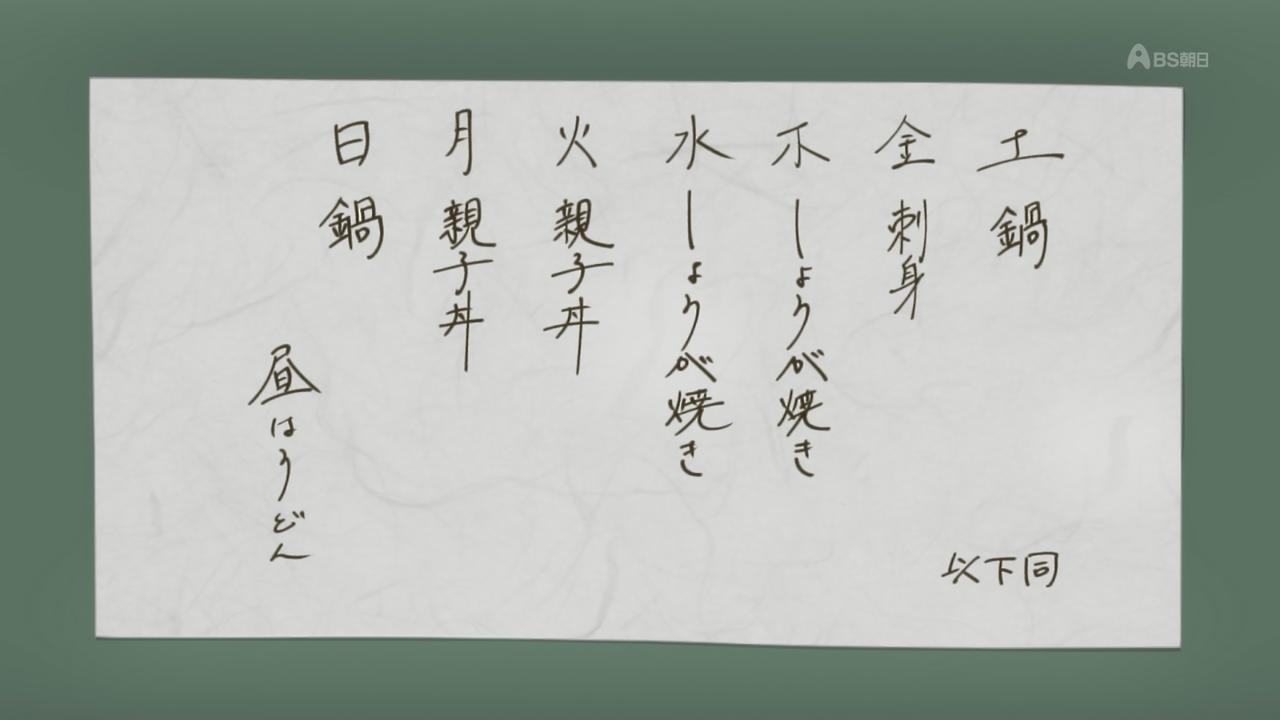 BS朝日
日 鍋
月 親子丼
火 親子丼
水 しょうが焼き
木 しょうが焼き
金 刺身
土 鍋
昼はうどん
以下同